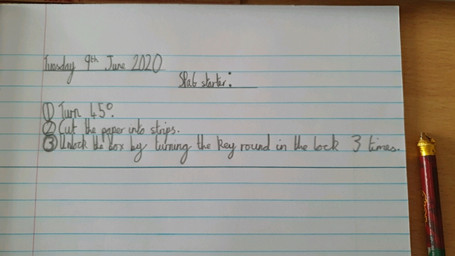 Tuesday 9th June 2020
starter:
① Turn 45°.
② Cut the paper into strips.
③ Unlock the box by turning the key round in the lock 3 times.